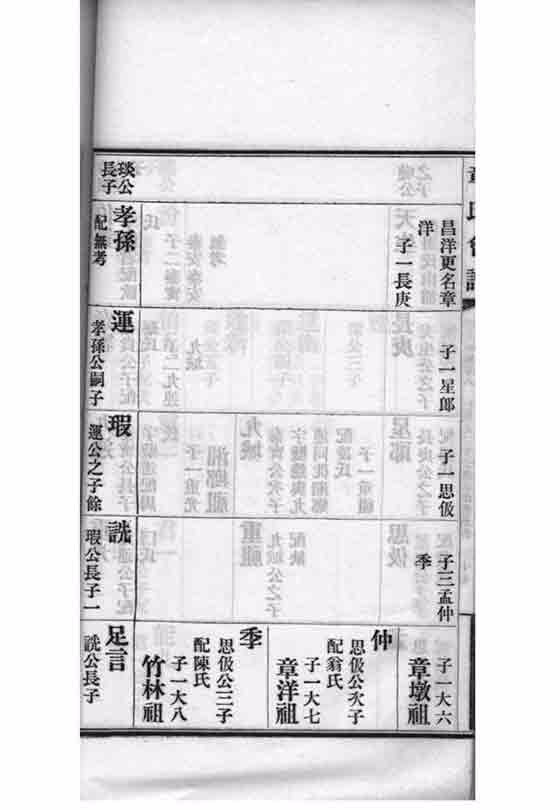 章氏會譜
琰公
長子
昌洋更名章
洋
子一長庚
孝孫
配無考
子一星郎
運
孝孫公嗣子
子一思伋
瑕
運公之子餘
子三孟仲
季
詵
瑕公長子一
子一大六
章墩祖
仲
思伋公次子
配翁氏
子一大七
章洋祖
季
思伋公三子
配陳氏
子一大八
竹林祖
足言
詵公長子